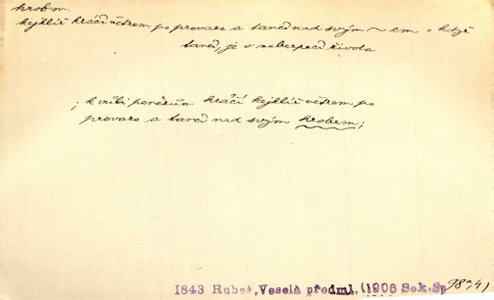 hrob m.
kejklíř kráčí větrem po provaze a tančí nad svým ~ em = když
tančí, je v nebezpečí života
; k vůli penězům kráčí kejklíř větrem po
provaze a tančí nad svým hrobem;
1843 Rubeš, Veselá předml. (1906 Sek. Sp 98a4)